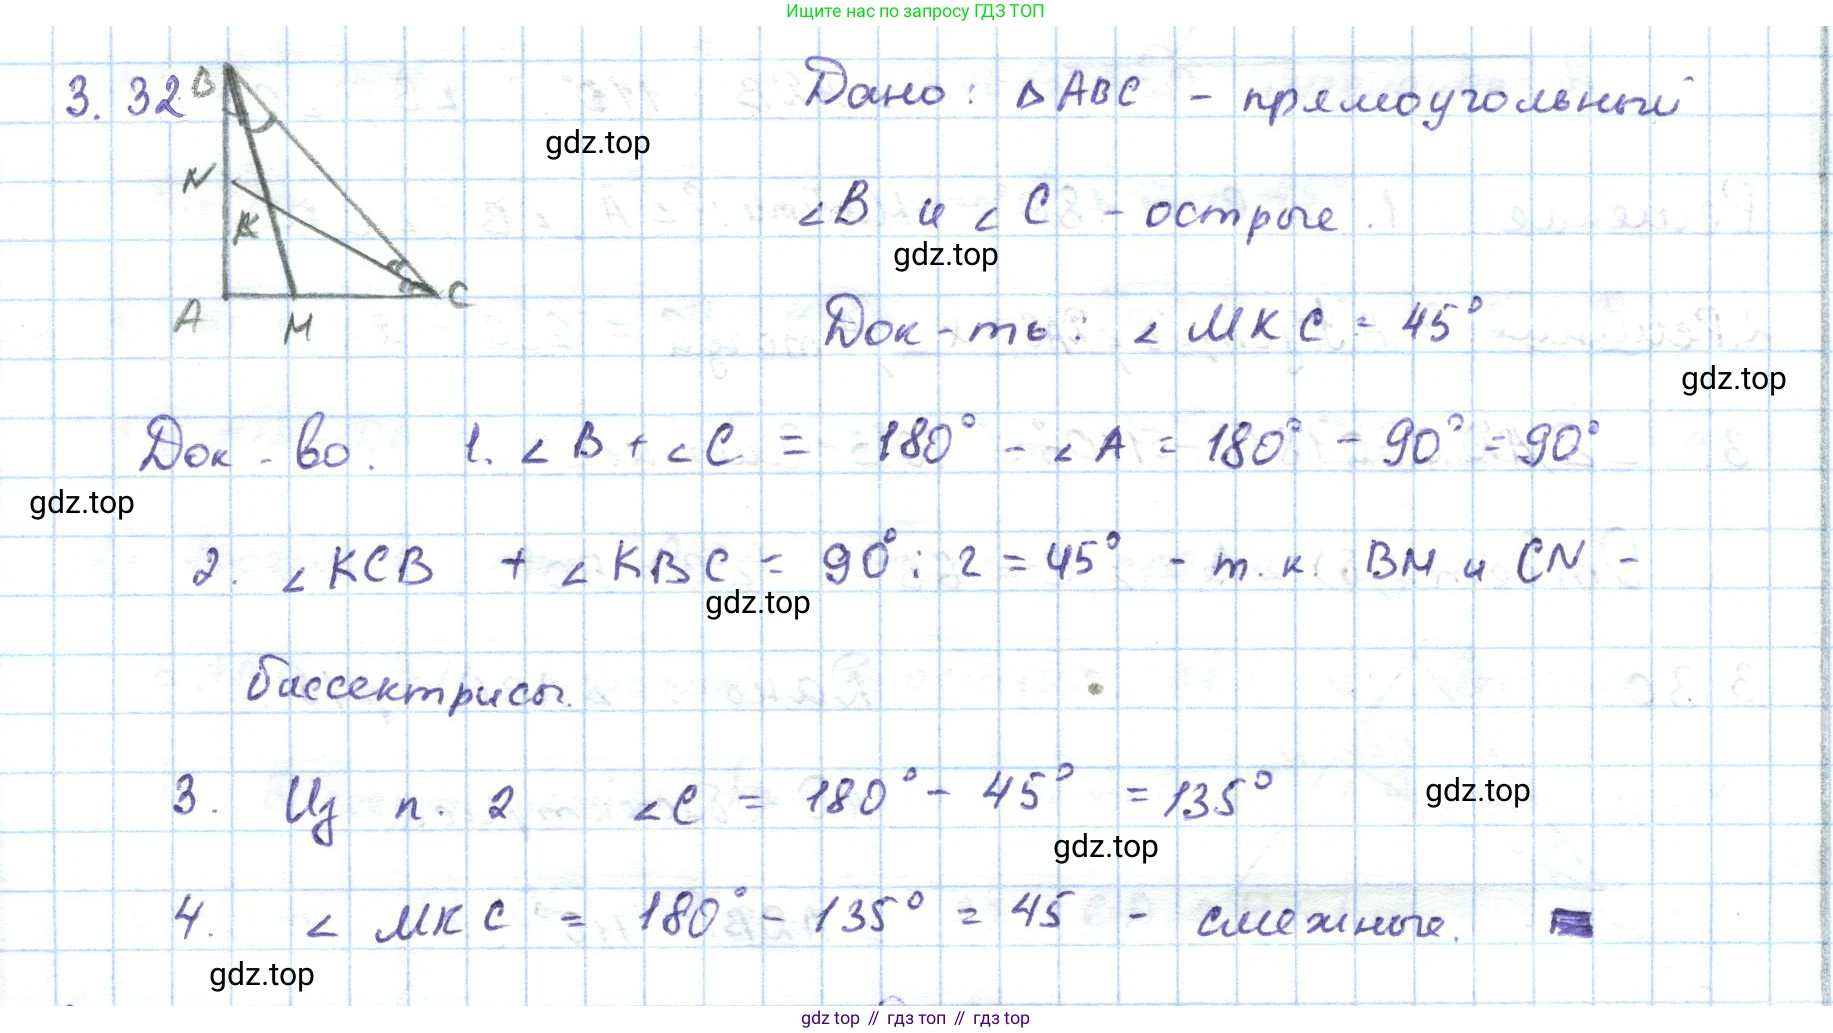 Ищите нас по запросу ГДЗ ТОП
3. 32 B Дано: ΔABC - прямоугольный
gdz.top
N
K
∠B и ∠C - острые.
gdz.top
A M C
Док-ть: ∠MKC = 45°
gdz.top
Док-во. 1. ∠B + ∠C = 180° - ∠A = 180° - 90° = 90°
gdz.top
2. ∠KCB + ∠KBC = 90° : 2 = 45° - т.к. BM и CN -
gdz.top
бассектрисы.
3. Из п. 2 ∠C = 180° - 45° = 135°
gdz.top
gdz.top
4. ∠MKC = 180° - 135° = 45 - смежные.
gdz.top
gdz top // гдз топ // гдз top